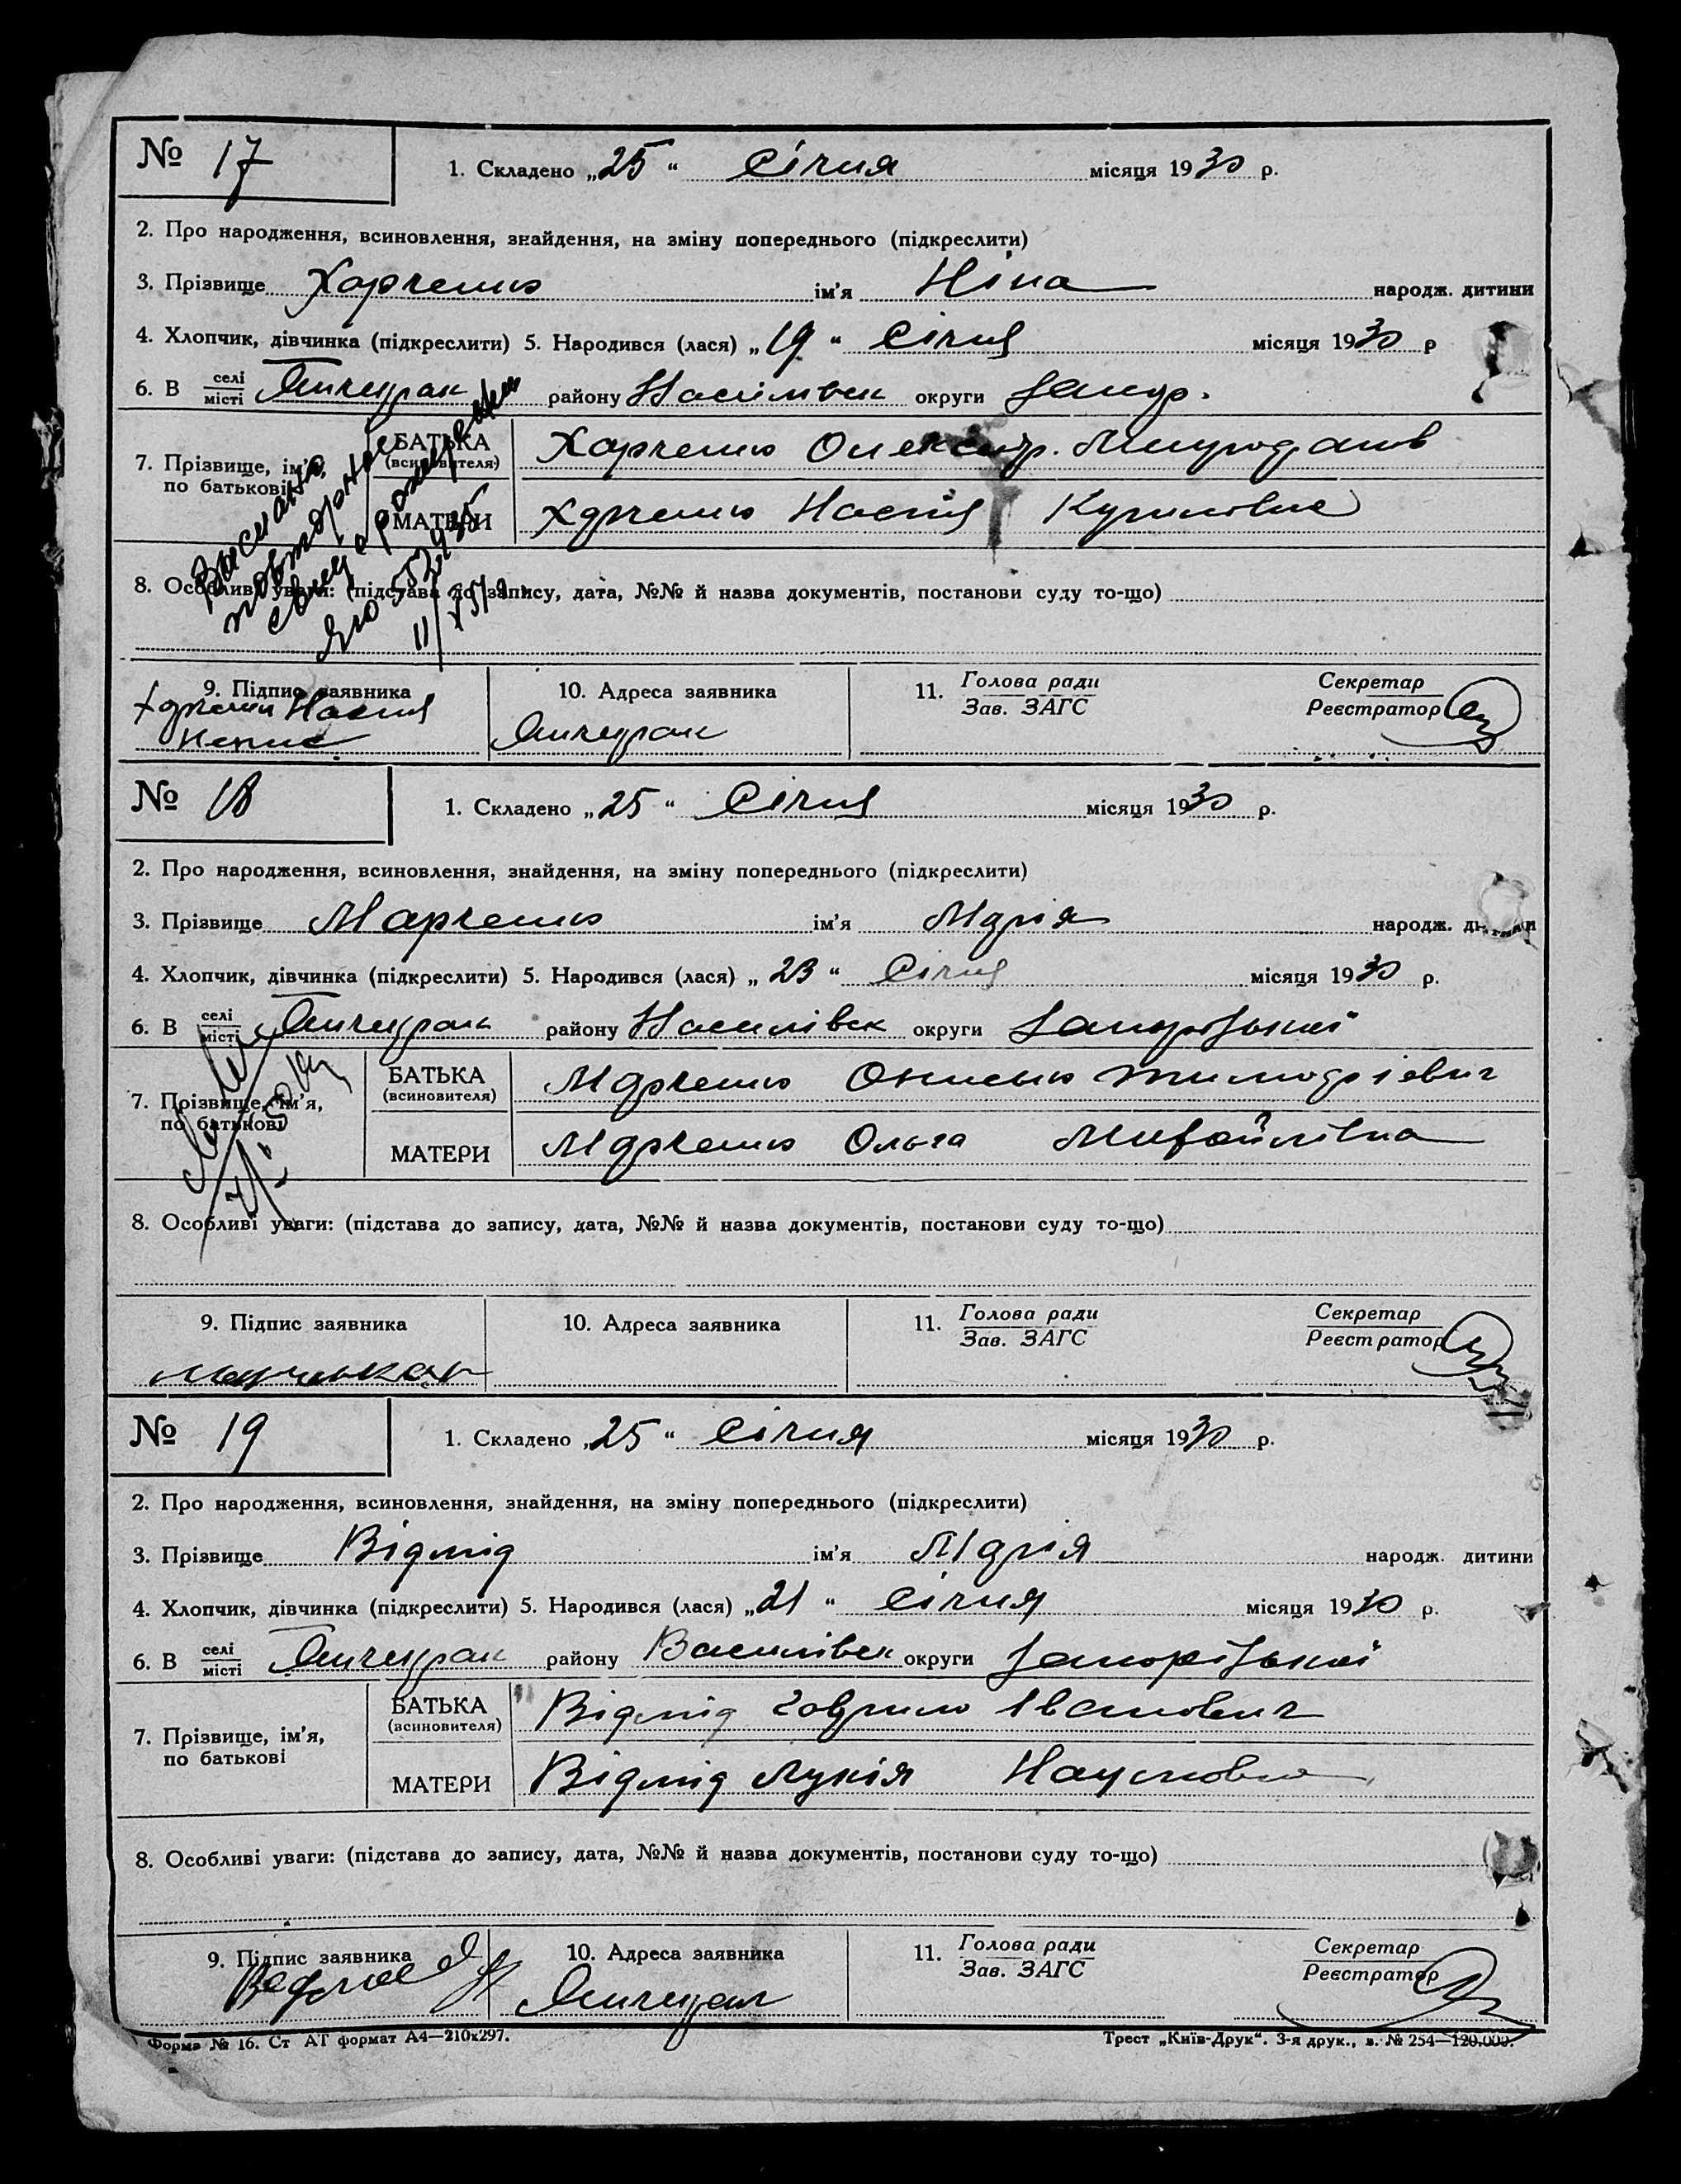 № 17
1. Складено „25“ Січня місяця 1930 р.
2. Про народження, всиновлення, знайдення, на зміну попереднього (підкреслити)
3. Прізвище Харченко ім'я Ніна народж. дитини
4. Хлопчик, дівчинка (підкреслити) 5. Народився (лася) „19“ Січня місяця 1930 р
6. В селі місті Янчекрак району Василівск округи Запор.
7. Прізвище, ім'я, по батькові
БАТЬКА (всиновителя) Харченко Олександр.
МАТЕРИ Харченко Настя Кириловна
8. Особливі уваги: (підстава до запису, дата, №№ й назва документів, постанови суду то-що)
повторное
9. Підпис заявника Харченко Настя
10. Адреса заявника Янчекрак
11. Голова ради Зав. ЗАГС
Секретар Реєстратор
№ 18
1. Складено „25“ Січня місяця 1930 р.
2. Про народження, всиновлення, знайдення, на зміну попереднього (підкреслити)
3. Прізвище Марченко ім'я Марія народж. дитини
4. Хлопчик, дівчинка (підкреслити) 5. Народився (лася) „23“ Січня місяця 1930 р.
6. В селі місті Янчекрак району Василівск округи Запорізької
7. Прізвище, ім'я, по батькові
БАТЬКА (всиновителя) Марченко Онисько
МАТЕРИ Марченко Ольга Михайлівна
8. Особливі уваги: (підстава до запису, дата, №№ й назва документів, постанови суду то-що)
9. Підпис заявника
10. Адреса заявника
11. Голова ради Зав. ЗАГС
Секретар Реєстратор
№ 19
1. Складено „25“ Січня місяця 1930 р.
2. Про народження, всиновлення, знайдення, на зміну попереднього (підкреслити)
3. Прізвище Відмід ім'я Марія народж. дитини
4. Хлопчик, дівчинка (підкреслити) 5. Народився (лася) „21“ Січня місяця 1930 р.
6. В селі місті Янчекрак району Василівск округи Запорізької
7. Прізвище, ім'я, по батькові
БАТЬКА (всиновителя) Відмід Гаврило Іванович
МАТЕРИ Відмід Лукія Наумовна
8. Особливі уваги: (підстава до запису, дата, №№ й назва документів, постанови суду то-що)
9. Підпис заявника
10. Адреса заявника Янчекрак
11. Голова ради Зав. ЗАГС
Секретар Реєстратор
Форма № 16. Ст АТ формат А4—210x297.
Трест „Київ-Друк“. 3-я друк., з. № 254—120.000.